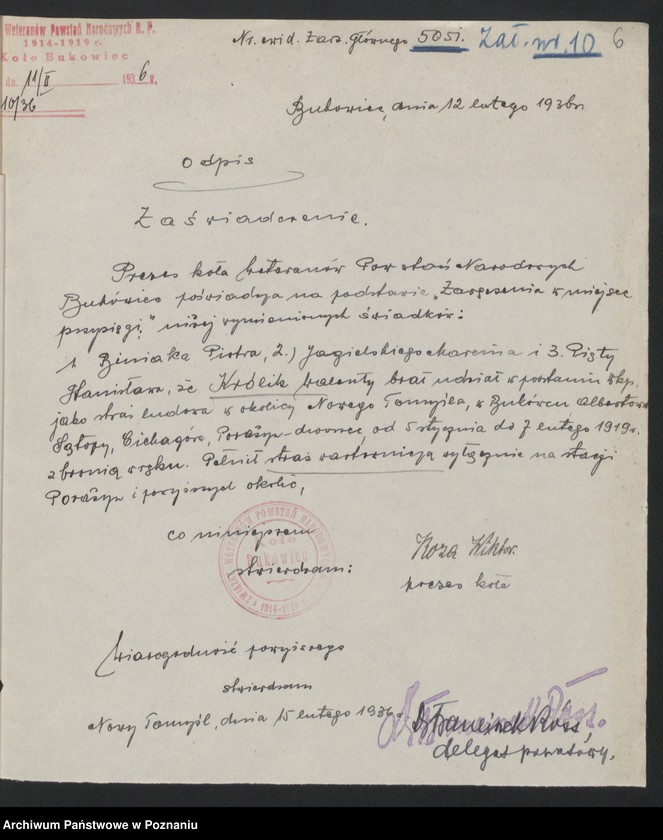 Weteranów Powstań Narodowych R. P.
1914-1919 r.
Koło Bukowiec
dn. 11/II 1936 r.
10/36
Nr. ewid. Zarz. głównego 5051. Zał. nr. 10 6
Bukowiec, dnia 12 lutego 1936 r.
Odpis
Zaświadczenie.
Prezes koła Weteranów Powstań Narodowych
Bukówiec poświadcza na podstawie „Zaręczenia w miejsce
przysięgi" niżej wymienionych świadków:
1. Biniaka Piotra, 2.) Jagielskiego Marcina i 3. Pięty
Stanisława, że Królik Walenty brał udział w powstaniu wlkp.
jako straż ludowa w okolicy Nowego Tomyśla, w Bukówcu Albertowsku
Sątopy, Cichagóra, Porażyn-dworzec, od 5 stycznia do 7 lutego 1919 r.
z bronią w ręku. Pełnił straż wartowniczą wyłącznie na stacji
Porażyn i powyższych okolic,
co niniejszem
stwierdzam:
Koza Wiktor
prezes koła
Związek Weteranów Powstań Narodowych
Koło
Bukowiec
1914-1919
Wiarogodność powyższego
stwierdzam
Nowy Tomyśl, dnia 15 lutego 1936.
Franciszek Röss,
delegat powiatowy.
Archiwum Państwowe w Poznaniu